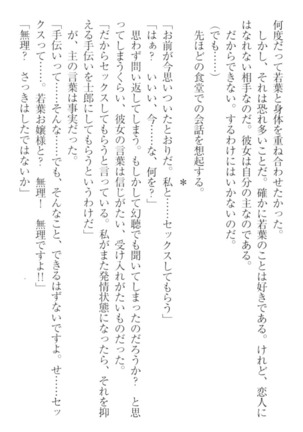 何度だって若葉と身体を重ね合わせたかった。
しかし、それは畏れ多いことだ。確かに若葉のことは好きである。けれど、恋人に
はなれない相手なのだ。彼女は自分の主なのである。
だからできない。するわけにはいかないのだ。
（でも……）
先ほどの食堂での会話を想起する。
＊
「お前が今思いついたとおりだ。私と……セックスしてもらう」
「はぁ？　いいい、今……な、何を？」
思わず問い返してしまう。もしかして幻聴でも聞いてしまったのだろうか？　と思
ってしまうくらい、彼女の言葉は信じがたい、受け入れがたいものだった。
「だからセックスしてもらうと言っている。私がまた発情状態になったら、それを抑
える手伝いを士郎にしてもらうというわけだ」
が、主の言葉は事実だった。
「手伝いって……そんな……でも、そんなこと、できるはずないですよ。せ……セッ
クスって……。若葉お嬢様と？　無理！　無理ですよ!!」
「無理？　さっきはしたではないか」